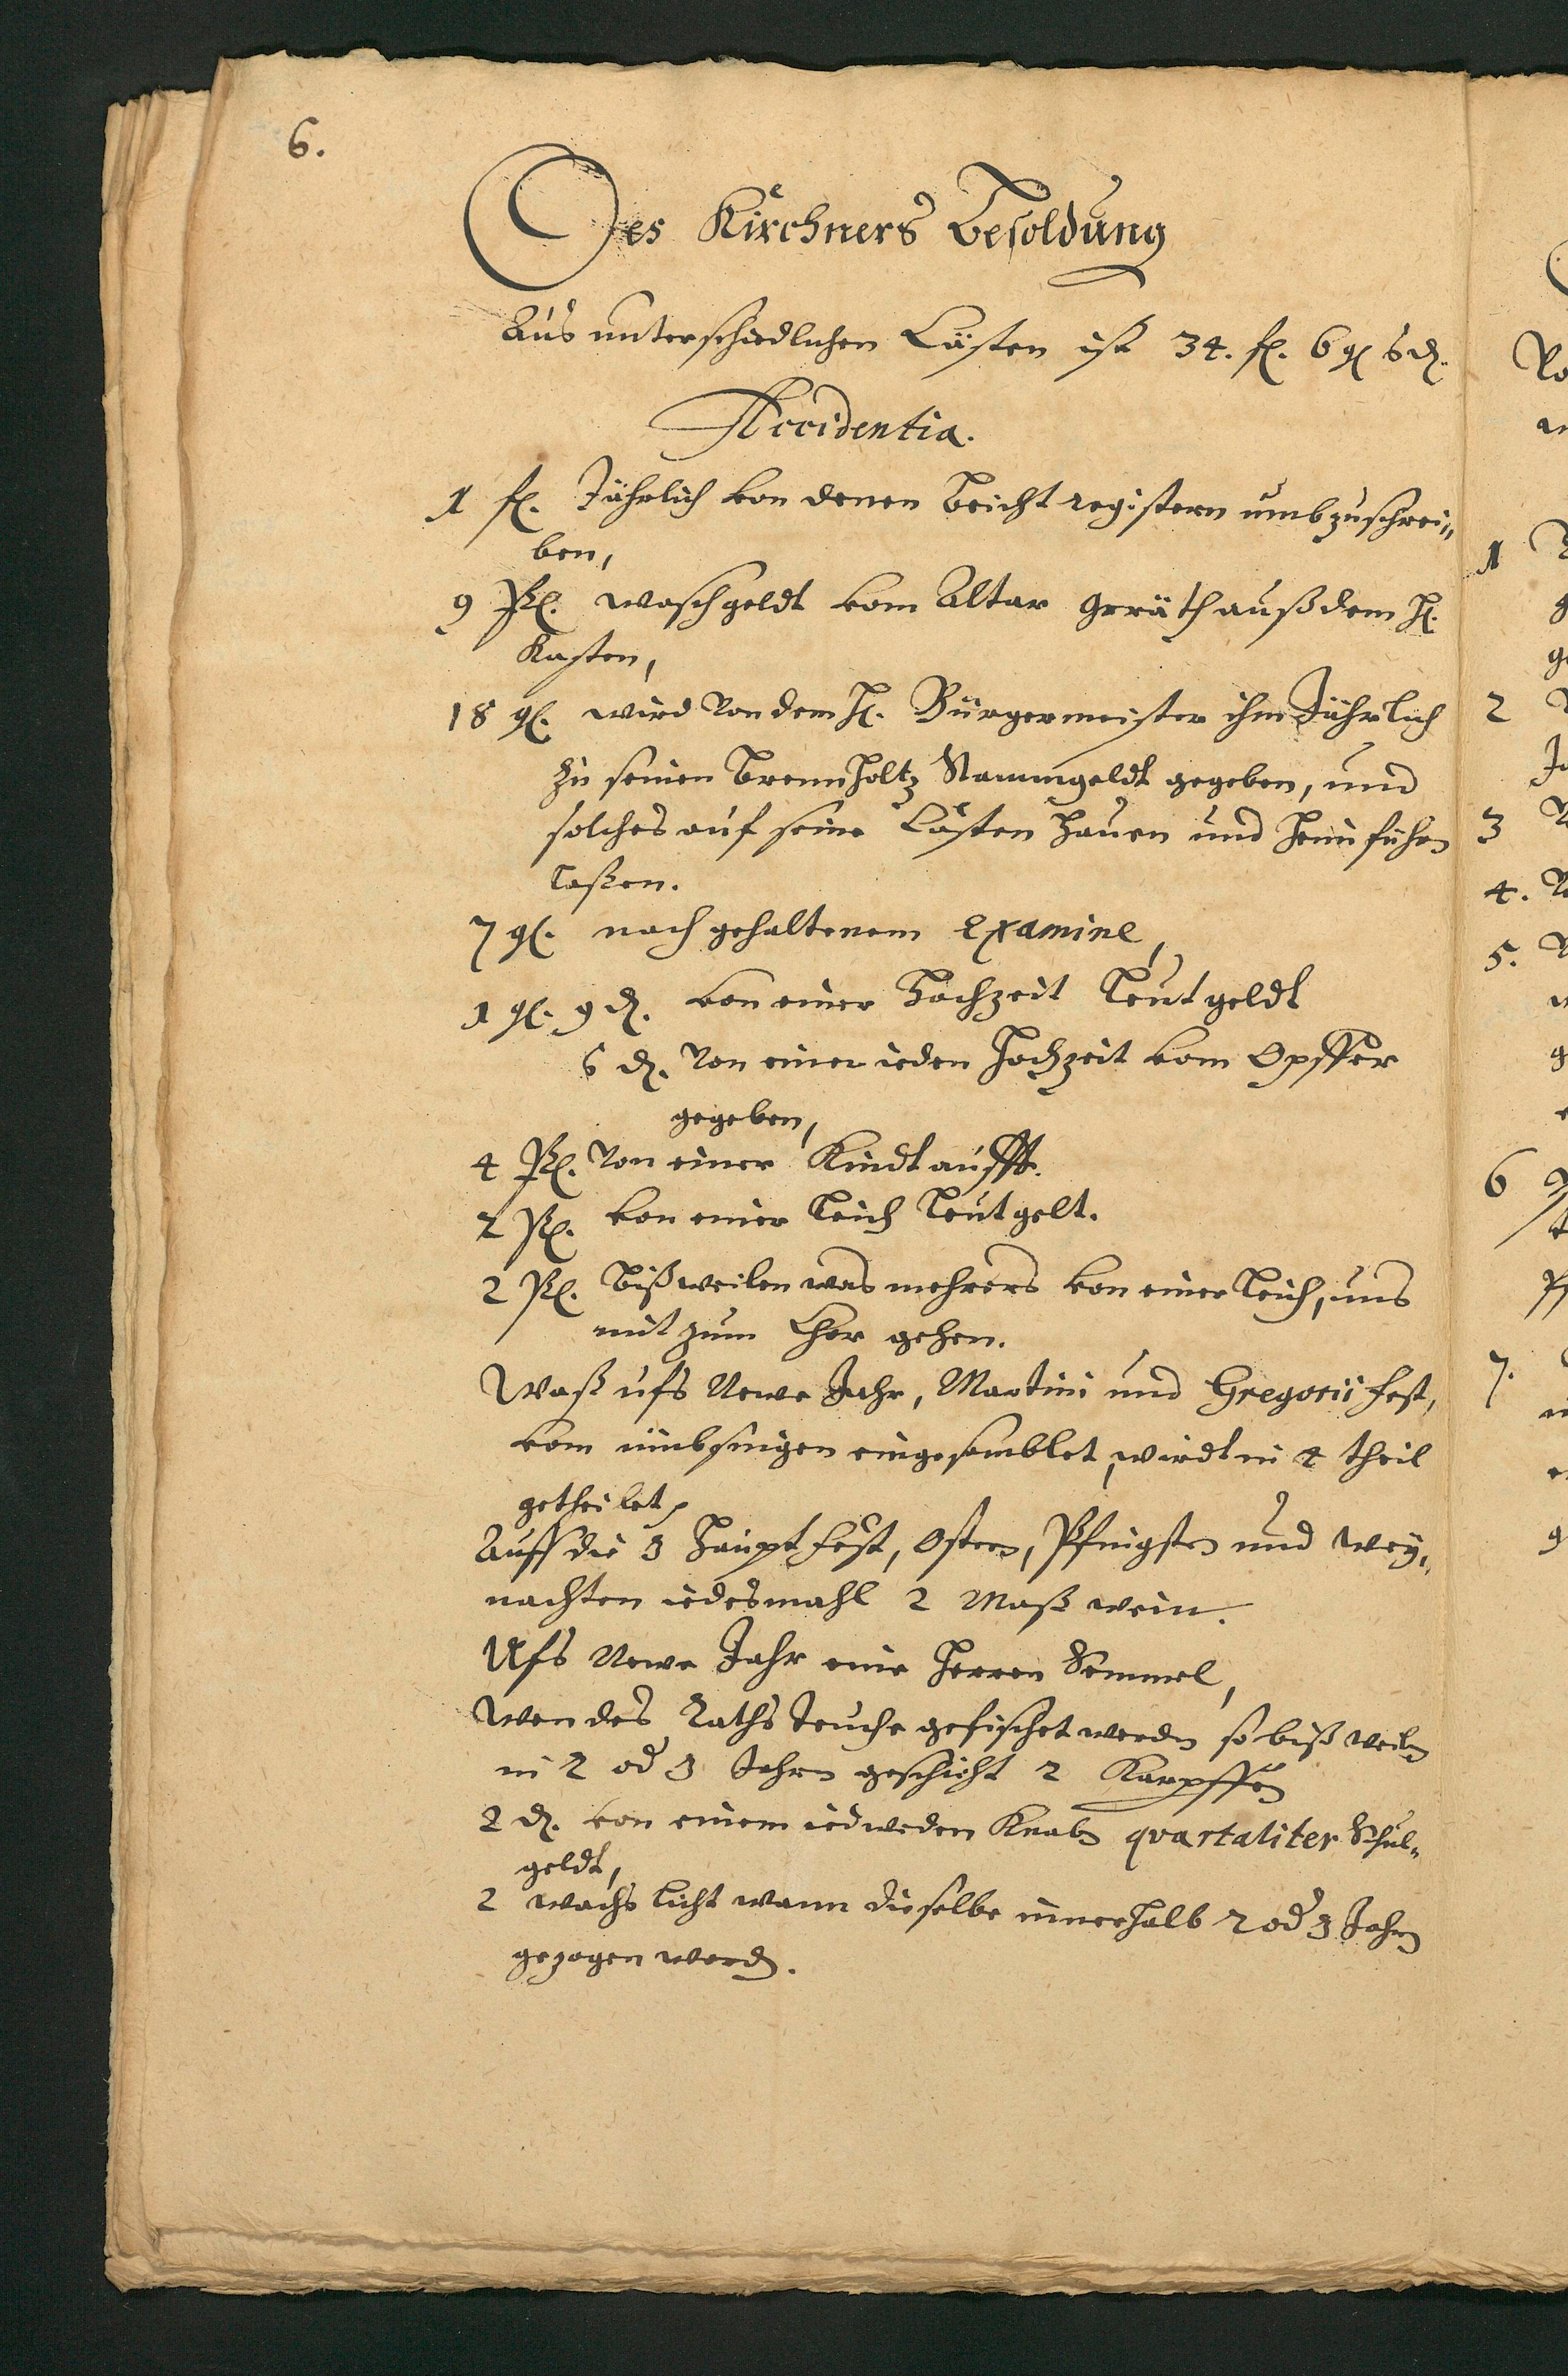 6.
Des Kirchners Besoldung
Aus unterschiedlichen Cästen ist 34. fl. 6 gl 6 d.
Accidentia.
1 fl. Jährlich von denen Beicht registern umbzuschrei„
ben,
9 Pl. waschgeldt vom Altar geräth auß dem H.
Kasten,
18 gl. wird von dem H. Bürgermeister ihm Jährlich
zu seinen Brennholtz Stammgeldt gegeben, und
solches auf seine Cösten hauen und heimführn
laßen.
7 gl. nach gehaltenem Examine,
1 gl. 9 d. von einer Hochzeit Leutgeldt
6 d. von einer ieden Hochzeit vom Opffer
gegeben,
4 Pl. von einer Kindtaufft.
2 Pl. von einer Leich Leutgelt.
2 Pl. Bißweilen was mehrers von einer Leich, uns
mit zum Chor gehen.
Waß ufs Newe Jahr, Martini und Gregorii fest,
vom umbsingen eingesamblet, wirdt in 4 theil
getheilet,
Auff die 3 Haupt fest, Ostern, Pfingsten und Wey„
nachten iedesmahl 2 Maß wein.
Ufs Newe Jahr eine Herren Semmel,
Wen des Raths Teuche gefischet werden so bißweiln
in 2 od 3 Jahrn geschicht 2 Karpffen
2 d. von einem iedweden Knabn quartaliter Schul„
geldt,
2 wachs licht wann dieselbe innerhalb 2 od 3 Jahrn
gezogen werdn.
1
2
3
4.
5.
6
7.